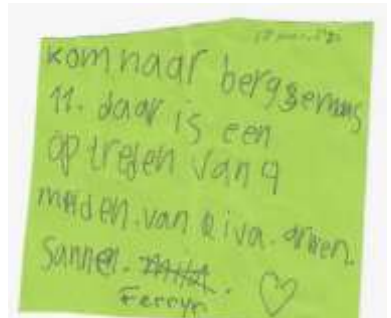 kom naar bergsemaas
11. daar is een
optreden van 4
meiden. van Riva. arwen.
Sanne.